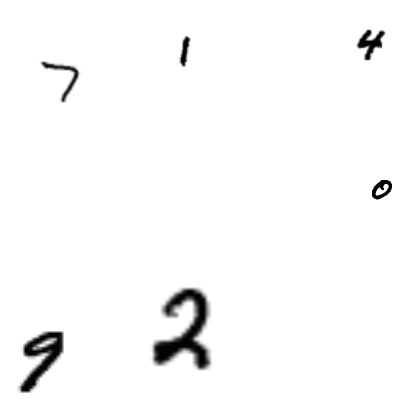 7 1 4
0
9 2